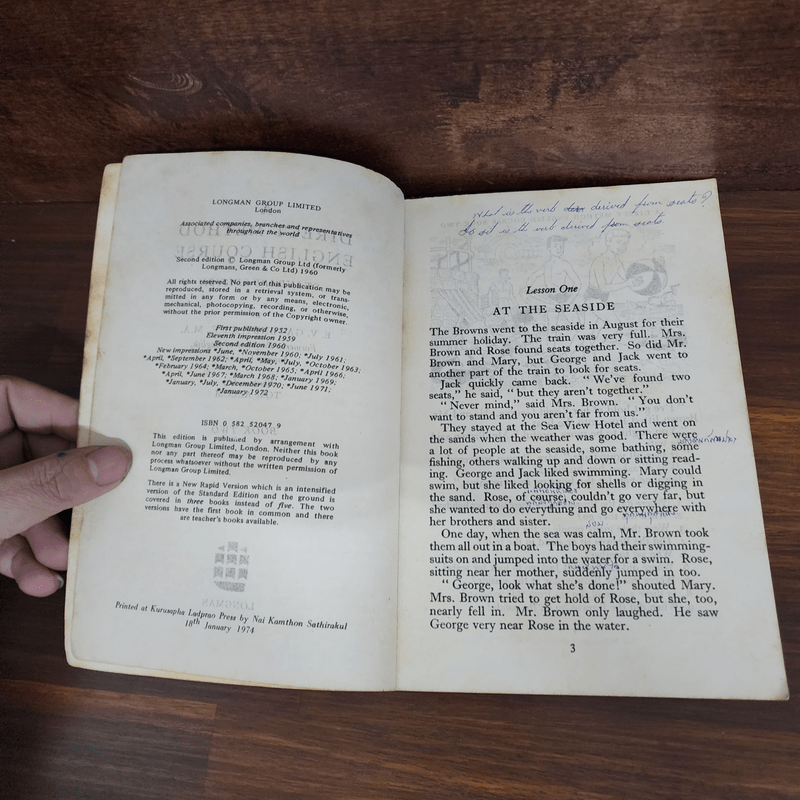 LONGMAN GROUP LIMITED
London
Associated companies, branches and representatives
throughout the world
Second edition © Longman Group Ltd (formerly
Longmans, Green & Co Ltd) 1960
All rights reserved. No part of this publication may be
reproduced, stored in a retrieval system, or trans-
mitted in any form or by any means, electronic,
mechanical, photocopying, recording, or otherwise,
without the prior permission of the Copyright owner.
First published 1952
Eleventh impression 1959
Second edition 1960
New impressions *June, *November 1960; *July 1961;
*April, *September 1962; *April, *May, *July, *October 1963;
*February 1964; *March, *October 1965; *April 1966;
*April, *June 1967; *March 1968; *January 1969;
*January, *July, *December 1970; *June 1971;
*January 1972
ISBN 0 582 52047 9
This edition is published by arrangement with
Longman Group Limited, London. Neither this book
nor any part thereof may be reproduced by any
process whatsoever without the written permission of
Longman Group Limited.
There is a New Rapid Version which is an intensified
version of the Standard Edition and the ground is
covered in three books instead of five. The two
versions have the first book in common and there
are teacher's books available.
Printed at Kurusapha Ladprao Press by Nai Kamthon Sathirakul
18th January 1974
What is the verb derived from seats?
sit is the verb derived from seats.
Lesson One
AT THE SEASIDE
The Browns went to the seaside in August for their
summer holiday. The train was very full. Mrs.
Brown and Rose found seats together. So did Mr.
Brown and Mary, but George and Jack went to
another part of the train to look for seats.
Jack quickly came back. "We've found two
seats," he said, "but they aren't together."
"Never mind," said Mrs. Brown. "You don't
want to stand and you aren't far from us."
They stayed at the Sea View Hotel and went on
the sands when the weather was good. There were
a lot of people at the seaside, some bathing, some
fishing, others walking up and down or sitting read-
ing. George and Jack liked swimming. Mary could
swim, but she liked looking for shells or digging in
the sand. Rose, of course, couldn't go very far, but
she wanted to do everything and go everywhere with
her brothers and sister.
One day, when the sea was calm, Mr. Brown took
them all out in a boat. The boys had their swimming-
suits on and jumped into the water for a swim. Rose,
sitting near her mother, suddenly jumped in too.
"George, look what she's done!" shouted Mary.
Mrs. Brown tried to get hold of Rose, but she, too,
nearly fell in. Mr. Brown only laughed. He saw
George very near Rose in the water.
3